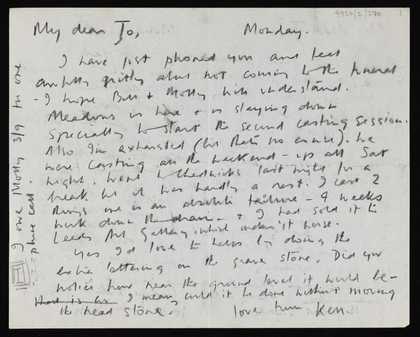 4956/2/270
My dear Jo, Monday.
I have just phoned you and feel
awfully guilty about not coming to the funeral
- I hope Ben + Molly will understand.
Meadows is here + is staying down
specially to start the second casting session.
Also I'm exhausted (but that's no excuse). We
were casting all the weekend - up all Sat
night. Went to Chadwicks last night for a
break but it was hardly a rest. I cast 2
things one is an absolute failure - 4 weeks
work down the drain - + I had sold it to
Leeds Art Gallery which makes it worse.
Yes I'd love to help by doing the
extra lettering on the grave stone. Did you
notice how near the ground level it would be -
I mean, could it be done without moving
the head stone.
love from Ken
I owe Molly 3/9 for one
phone call.